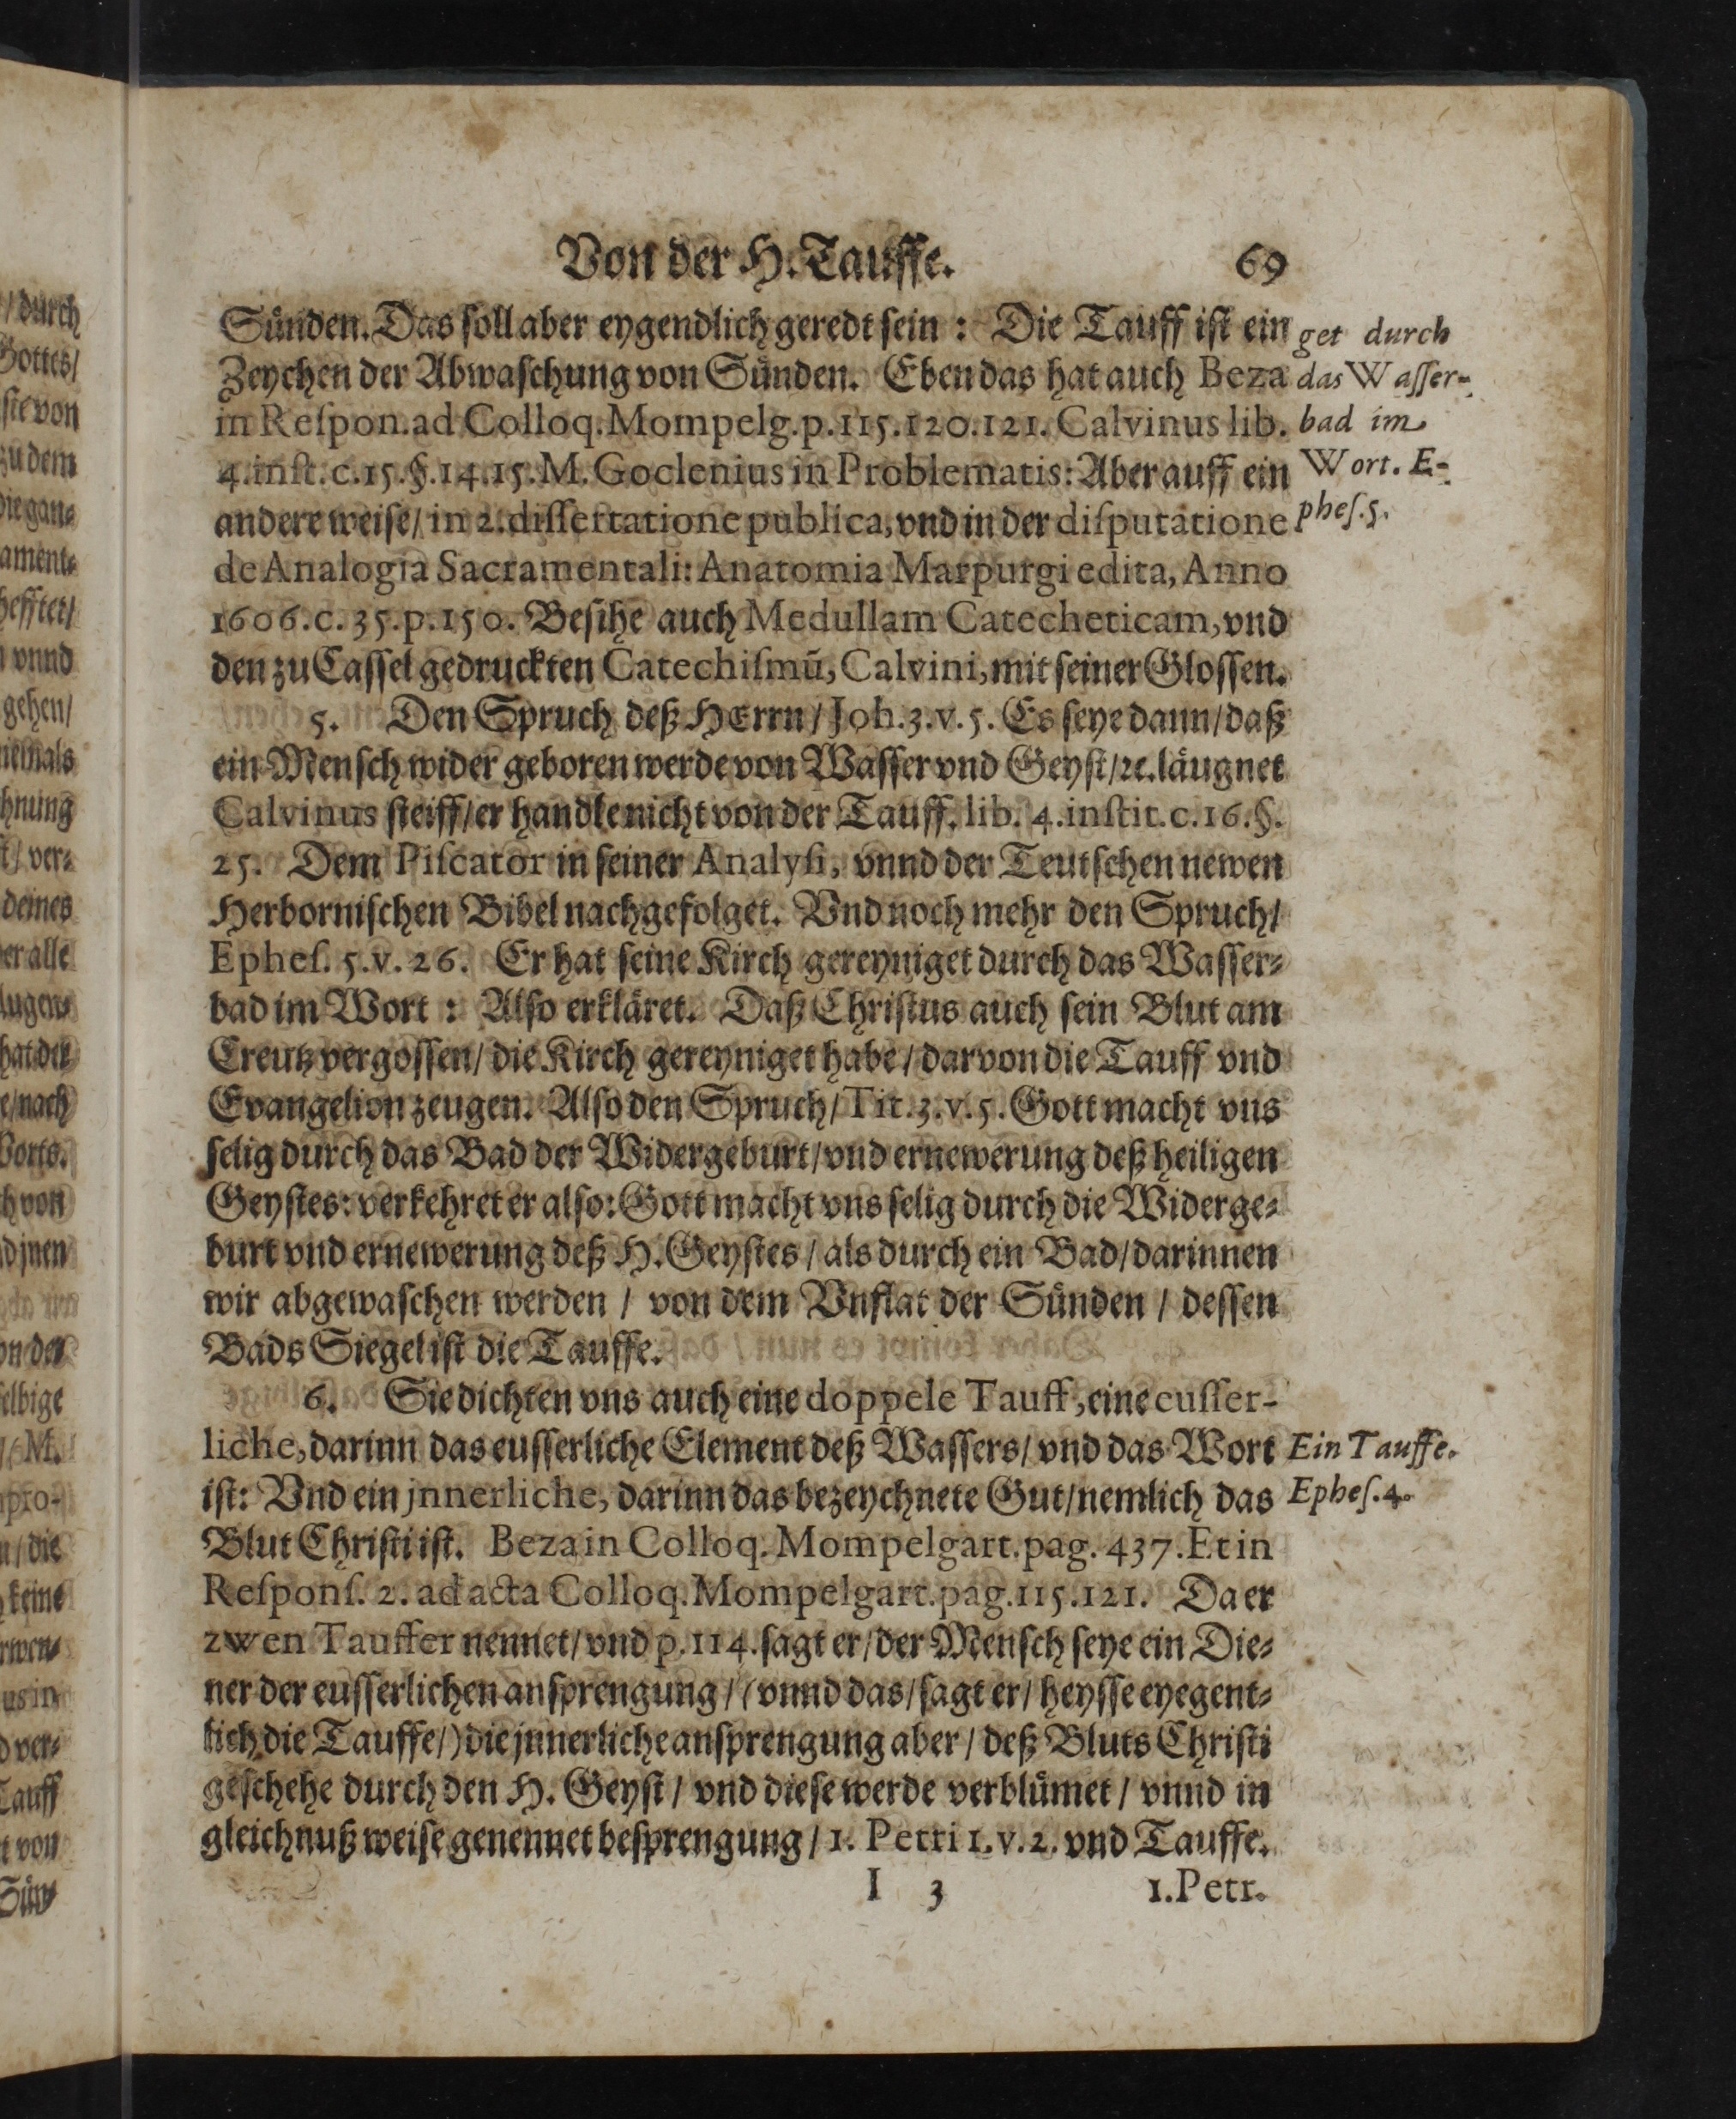 Von der H. Tauffe. 69
Sünden. Das soll aber eygendlich geredt sein: Die Tauff ist ein
Zeychen der Abwaschung von Sünden. Eben das hat auch Beza
in Reſpon. ad Colloq. Mompelg. p. 115. 120. 121. Calvinus lib.
4. inſt. c. 15. §. 14. 15. M. Goclenius in Problematis: Aber auff ein
andere weise/ in 2. diſſertatione publica, vnd in der diſputatione
de Analogia Sacramentali: Anatomia Marpurgi edita, Anno
1606. c. 35. p. 150. Besihe auch Medullam Catecheticam, vnd
den zu Cassel gedruckten Catechiſmū, Calvini, mit seiner Glossen.
get durch
das Waſſer-
bad im
Wort. E-
pheſ. 5.
5. Den Spruch deß HErrn/ Joh. 3. v. 5. Es seye dann/ daß
ein Mensch wider geboren werde von Wasser vnd Geyst/ ꝛc. läugnet
Calvinus steiff/ er handle nicht von der Tauff. lib. 4. inſtit. c. 16. §.
25. Dem Piſcator in seiner Analyſi, vnnd der Teutschen newen
Herbornischen Bibel nachgefolget. Vnd noch mehr den Spruch/
Epheſ. 5. v. 26. Er hat seine Kirch gereyniget durch das Wasser-
bad im Wort: Also erkläret. Daß Christus auch sein Blut am
Creutz vergossen/ die Kirch gereyniget habe/ darvon die Tauff vnd
Evangelion zeugen. Also den Spruch/ Tit. 3. v. 5. Gott macht vns
selig durch das Bad der Widergeburt/ vnd ernewerung deß heiligen
Geystes: verkehret er also: Gott macht vns selig durch die Widerge-
burt vnd ernewerung deß H. Geystes/ als durch ein Bad/ darinnen
wir abgewaschen werden/ von dem Vnflat der Sünden/ dessen
Bads Siegel ist die Tauffe.
6. Sie dichten vns auch eine doppele Tauff, eine euſſer-
liche, darinn das eusserliche Element deß Wassers/ vnd das Wort
ist: Vnd ein jnnerliche, darinn das bezeychnete Gut/ nemlich das
Blut Christi ist. Beza in Colloq. Mompelgart. pag. 437. Et in
Reſponſ. 2. ad acta Colloq. Mompelgart. pag. 115. 121. Da er
zwen Tauffer nennet/ vnd p. 114. sagt er/ der Mensch seye ein Die-
ner der eusserlichen ansprengung/ (vnnd das/ sagt er/ heysse eyegent-
lich die Tauffe/) die jnnerliche ansprengung aber/ deß Bluts Christi
geschehe durch den H. Geyst/ vnd diese werde verblümet/ vnnd in
gleichnuß weise genennet besprengung/ 1. Petri 1. v. 2. vnd Tauffe.
Ein Tauffe.
Epheſ. 4.
I 3 1. Petr.